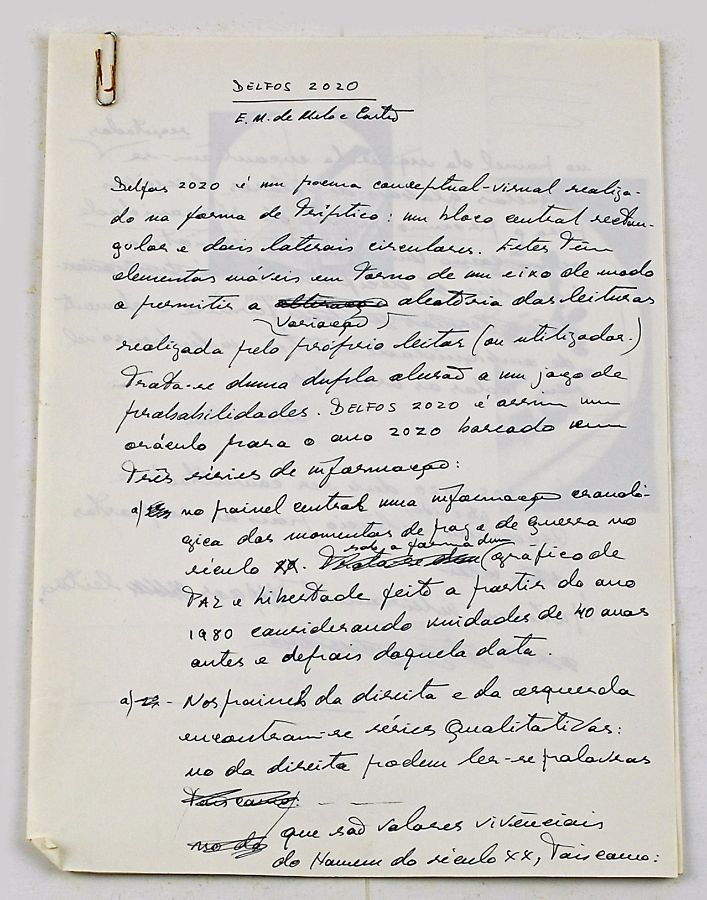 DELFOS 2020
E. M. de Melo e Castro
Delfos 2020 é um poema conceptual-visual realiza-
do na forma de tríptico: um bloco central rectan-
gular e dois laterais circulares. Estes têm
elementos móveis em torno de um eixo de modo
a permitir a alteração aleatória das leituras
(variação)
realizada pelo próprio leitor (ou utilizador.)
Trata-se duma dupla alusão a um jogo de
probabilidades. DELFOS 2020 é assim um
oráculo para o ano 2020 baseado em
três séries de informação:
a) no painel central uma informação cronoló-
gica dos momentos de paz e de guerra no
sob a forma dum
século XX. Trata-se dum (gráfico de
PAZ e Liberdade feito a partir do ano
1980 considerando unidades de 40 anos
antes e depois daquela data.
a) - Nos painéis da direita e da esquerda
encontram-se séries Qualitativas:
no da direita podem ler-se palavras
tais como:
no da que são valores vivenciais
do Homem do século XX, tais como: